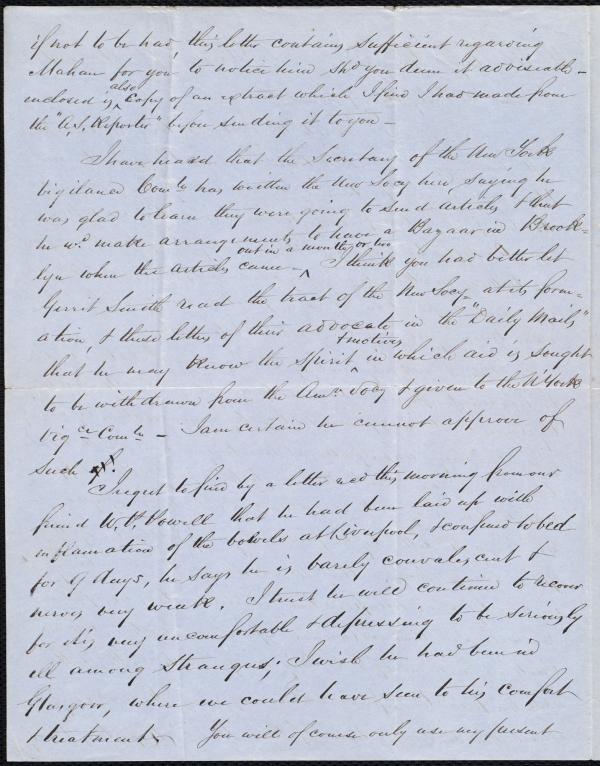 if not to be had, this letter contains sufficient regarding
Mahan for you to notice him, sho'd you deem it adviseable –
also
enclosed is copy of an extract which I find I had made from
the "A.S. Reporter" before sending it to you –
I have heard that the Secretary of the New York
Vigilance Comte has written the New Socy here, saying he
was glad to learn they were going to send articles & that
he wd make arrangements to have a Bazaar in Brook=
out in a month or two
lyn when the articles came – I think you had better let
Gerrit Smith read the tract of the New Socy at its form=
ation, & those letters of their advocate in the "Daily Mails"
& motives
that he may know the spirit in which aid is sought
to be withdrawn from the Amn Socy & given to the N York
Vigce Comte – I am certain he cannot approve of
such
I regret to find by a letter recd this morning from our
friend W. P. Powell that he had been laid up with
inflamation of the bowels at Liverpool, & confined to bed
for 9 days, he says he is barely convalescent &
nerves very weak. I trust he will continue to recover
for it is very uncomfortable & depressing to be seriously
ill among strangers; I wish he had been in
Glasgow, where we could have seen to his comfort
& treatment – You will of course only use my present